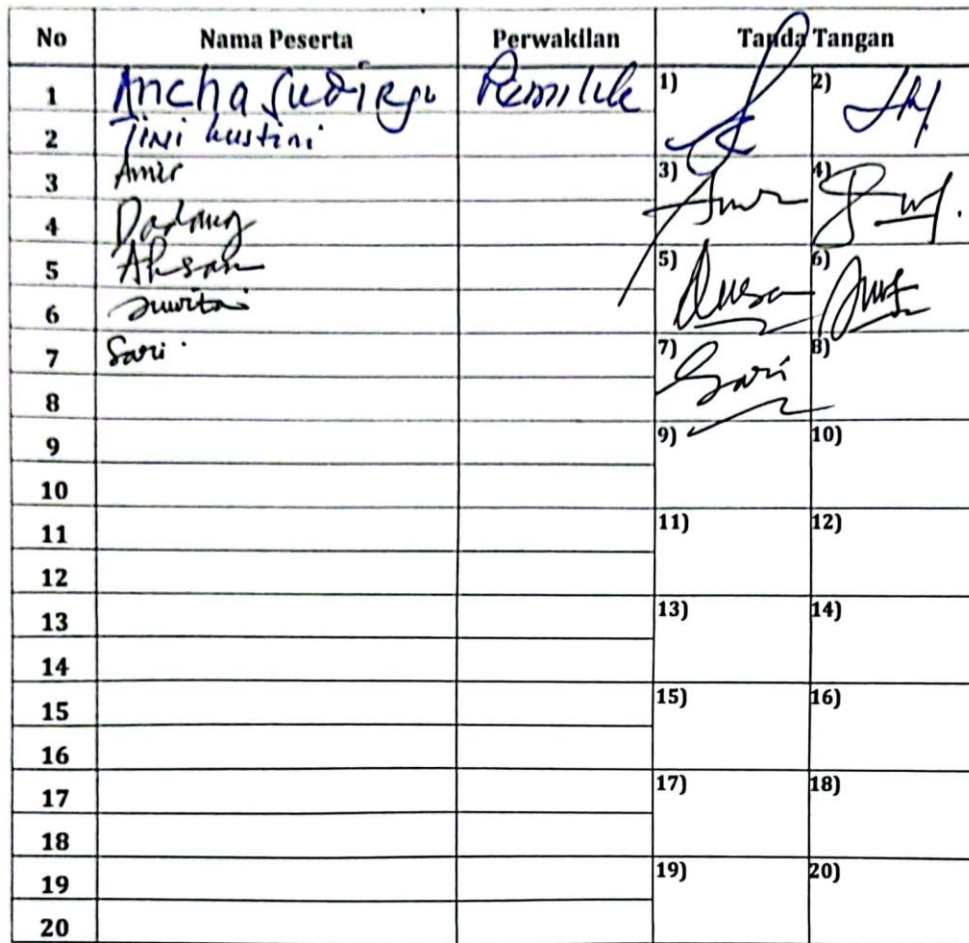 No Nama Peserta Perwakilan Tanda Tangan
1 Ancha Sudirjo Pemilik 1) 2)
2 Tini Kustini
3 Amir 3) Amir 4)
4 Dadang
5 Ahsan 5) 6)
6 Juwita
7 Sari 7) Sari 8)
8
9 9) 10)
10
11 11) 12)
12
13 13) 14)
14
15 15) 16)
16
17 17) 18)
18
19 19) 20)
20